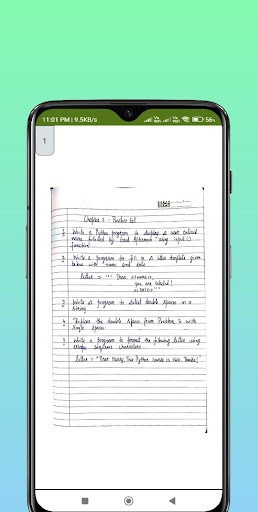 11:01 PM | 9.5KB/s
56
1
Chapter 3 - Practice Set
1 Write a Python program to display a user entered
name followed by "Good Afternoon" using input()
function
2 Write a program to fill in a letter template given
below with name and date.
letter = ''' Dear <|NAME|>,
you are selected!
<|DATE|> '''
3 Write a program to detect double spaces in a
string
4 Replace the double spaces from Problem 3 with
single spaces
5 Write a program to format the following letter using
escape sequence characters.
letter = "Dear Harry, This Python course is nice. Thanks!"